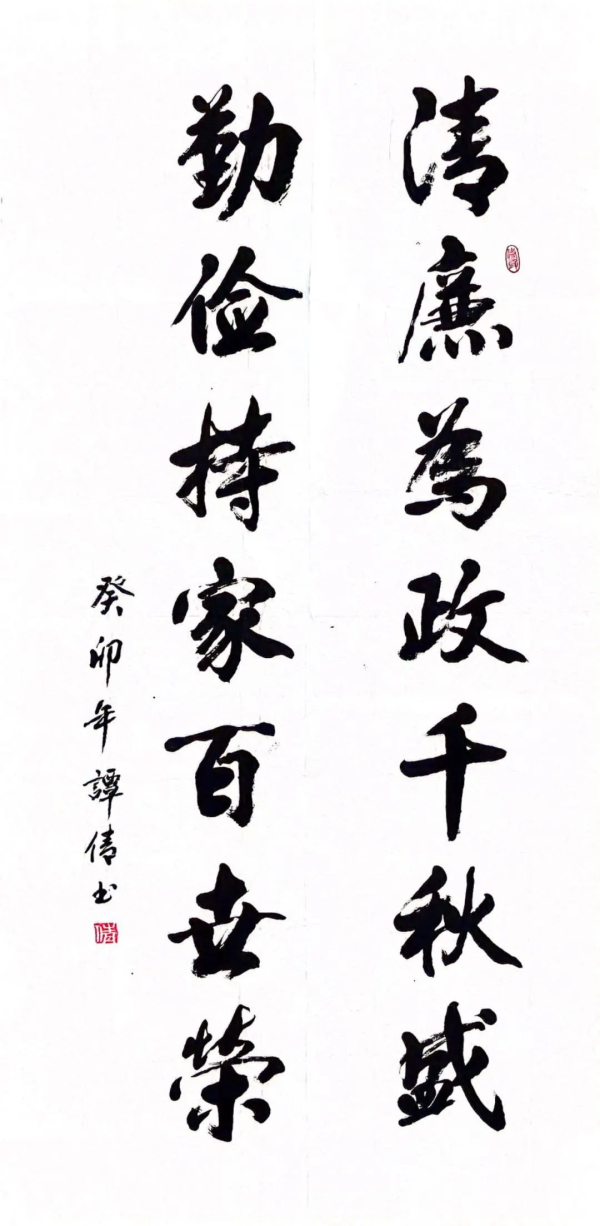 清廉為政千秋盛
勤俭持家百世榮
癸卯年譚倩书